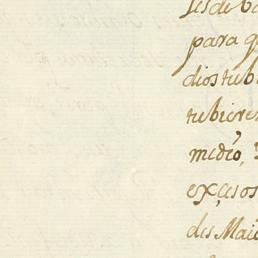 para q
dios tub
tubiere
medio,
exçesos
des Maio